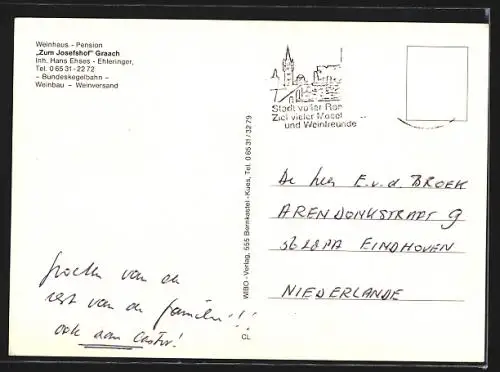 Weinhaus - Pension
„Zum Josefshof" Graach
Inh. Hans Ehses - Ehleringer,
Tel. 0 65 31 - 22 72
– Bundeskegelbahn –
Weinbau – Weinversand
groeten van de
rest van de familie!!!
ook aan
WIBO - Verlag, 555 Bernkastel-Kues, Tel. 0 65 31 / 32 79
CL
Stadt voller
Ziel vieler Mosel
und Weinfreunde
De heer E.v.d. BROEK
ARENDONKSTRAAT 9
EINDHOVEN
NIEDERLANDE